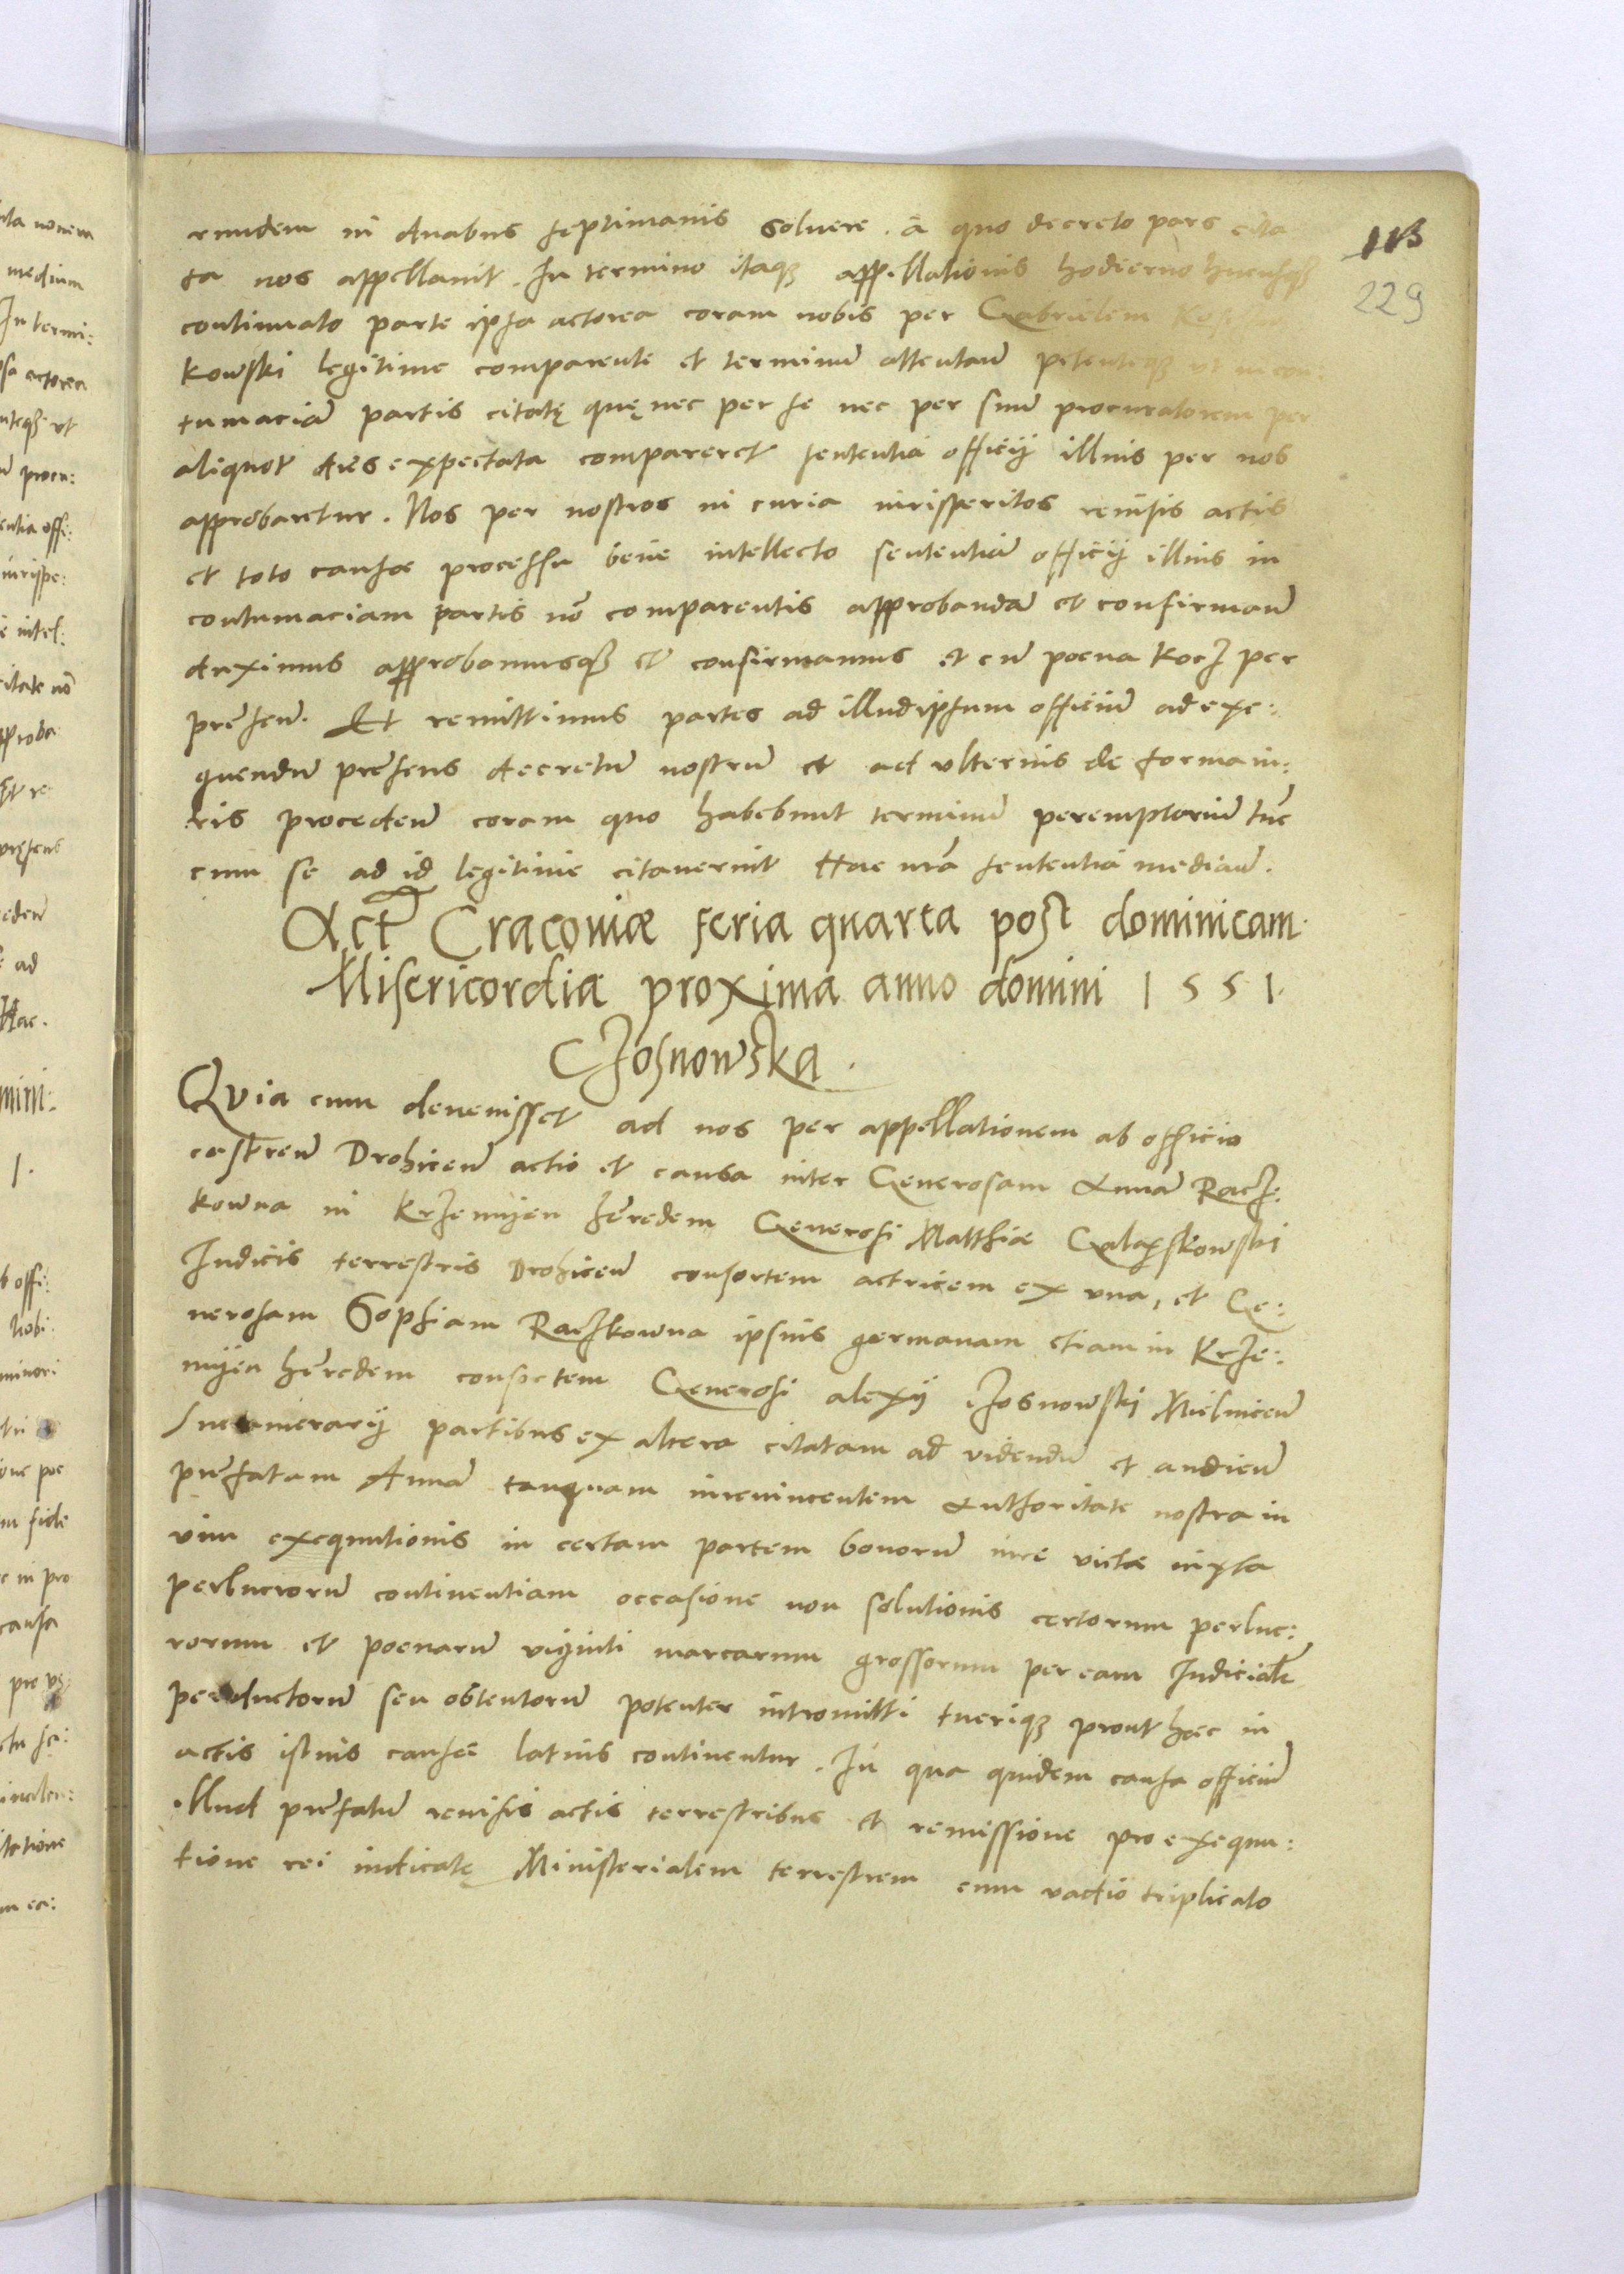 113
229
rundem in duabus septimanis soluere. a quo decreto pars cita
ta nos appellauit. In termino itaqꝫ appellationis hodierno hucusqꝫ
continuato parte ipsa actorea coram nobis per Gabrielem
kowski legitime comparente et terminũ attentaũ petenteqꝫ ut in con:
tumaciã partis citatę quę nec per se nec per suũ procuratorem per
aliquot dies expectata compareret sententia officij illius per nos
approbaretur. Nos per nostros in curia iurisperitos reuisis actis
et toto causae processu bene intellecto sententiã officij illius in
contumaciam partis nõ comparentis approbandã et confirmaũ
duximus approbamusqꝫ et confirmamus et cũ poena koczʒ per
pręseũ. Et remittimus partes ad illud ipsum officiũ ad exe:
quendũ pręsens decretũ nostrũ et ad vlterius de forma iu:
ris procedeũ coram quo habebunt terminũ peremptoriũ tũc
cum se ad id legitime citauerint Hac nrã sententia mediaũ.
Actũ Cracouiæ feria quarta post dominicam
Misericordiæ proxima anno domini 1551.
Czosnowska.
Quia cum deuenisset ad nos per appellationem ab officio
castreñ Drohiceñ actio et causa inter Generosam Annã Racz:
kowna in Krzemijen hęredem Generosi Matthiæ
Iudicis terrestris Drohiceñ consortem actricem ex vna, et Ge:
nerosam Sophiam Raczkowna ipsius germanam etiam in Krze:
mijen hęredem consortem Generosi Alexij Czosnowski Mielniceñ
Succamerarij partibus ex altera citatam ad videndũ et audieũ
pręfatam Annã tanquam iureuincentem Authoritate nostra in
vim exequutionis in certam partem bonorũ iure victæ iuxta
perlucrorũ continentiam occasione non solutionis certorum perluc:
rorum et poenarũ viginti marcarum grossorum per eam Iudicialr̃
perductorũ seu obtentorũ potenter intromitti tueriqꝫ prout hæc in
actis istius causæ latius continentur. In qua quidem causa officiũ
illud pręfatũ reuisis actis terrestribus et remissione pro exequu:
tione rei iudicatę Ministerialem terrestrem cum vadio triplicato